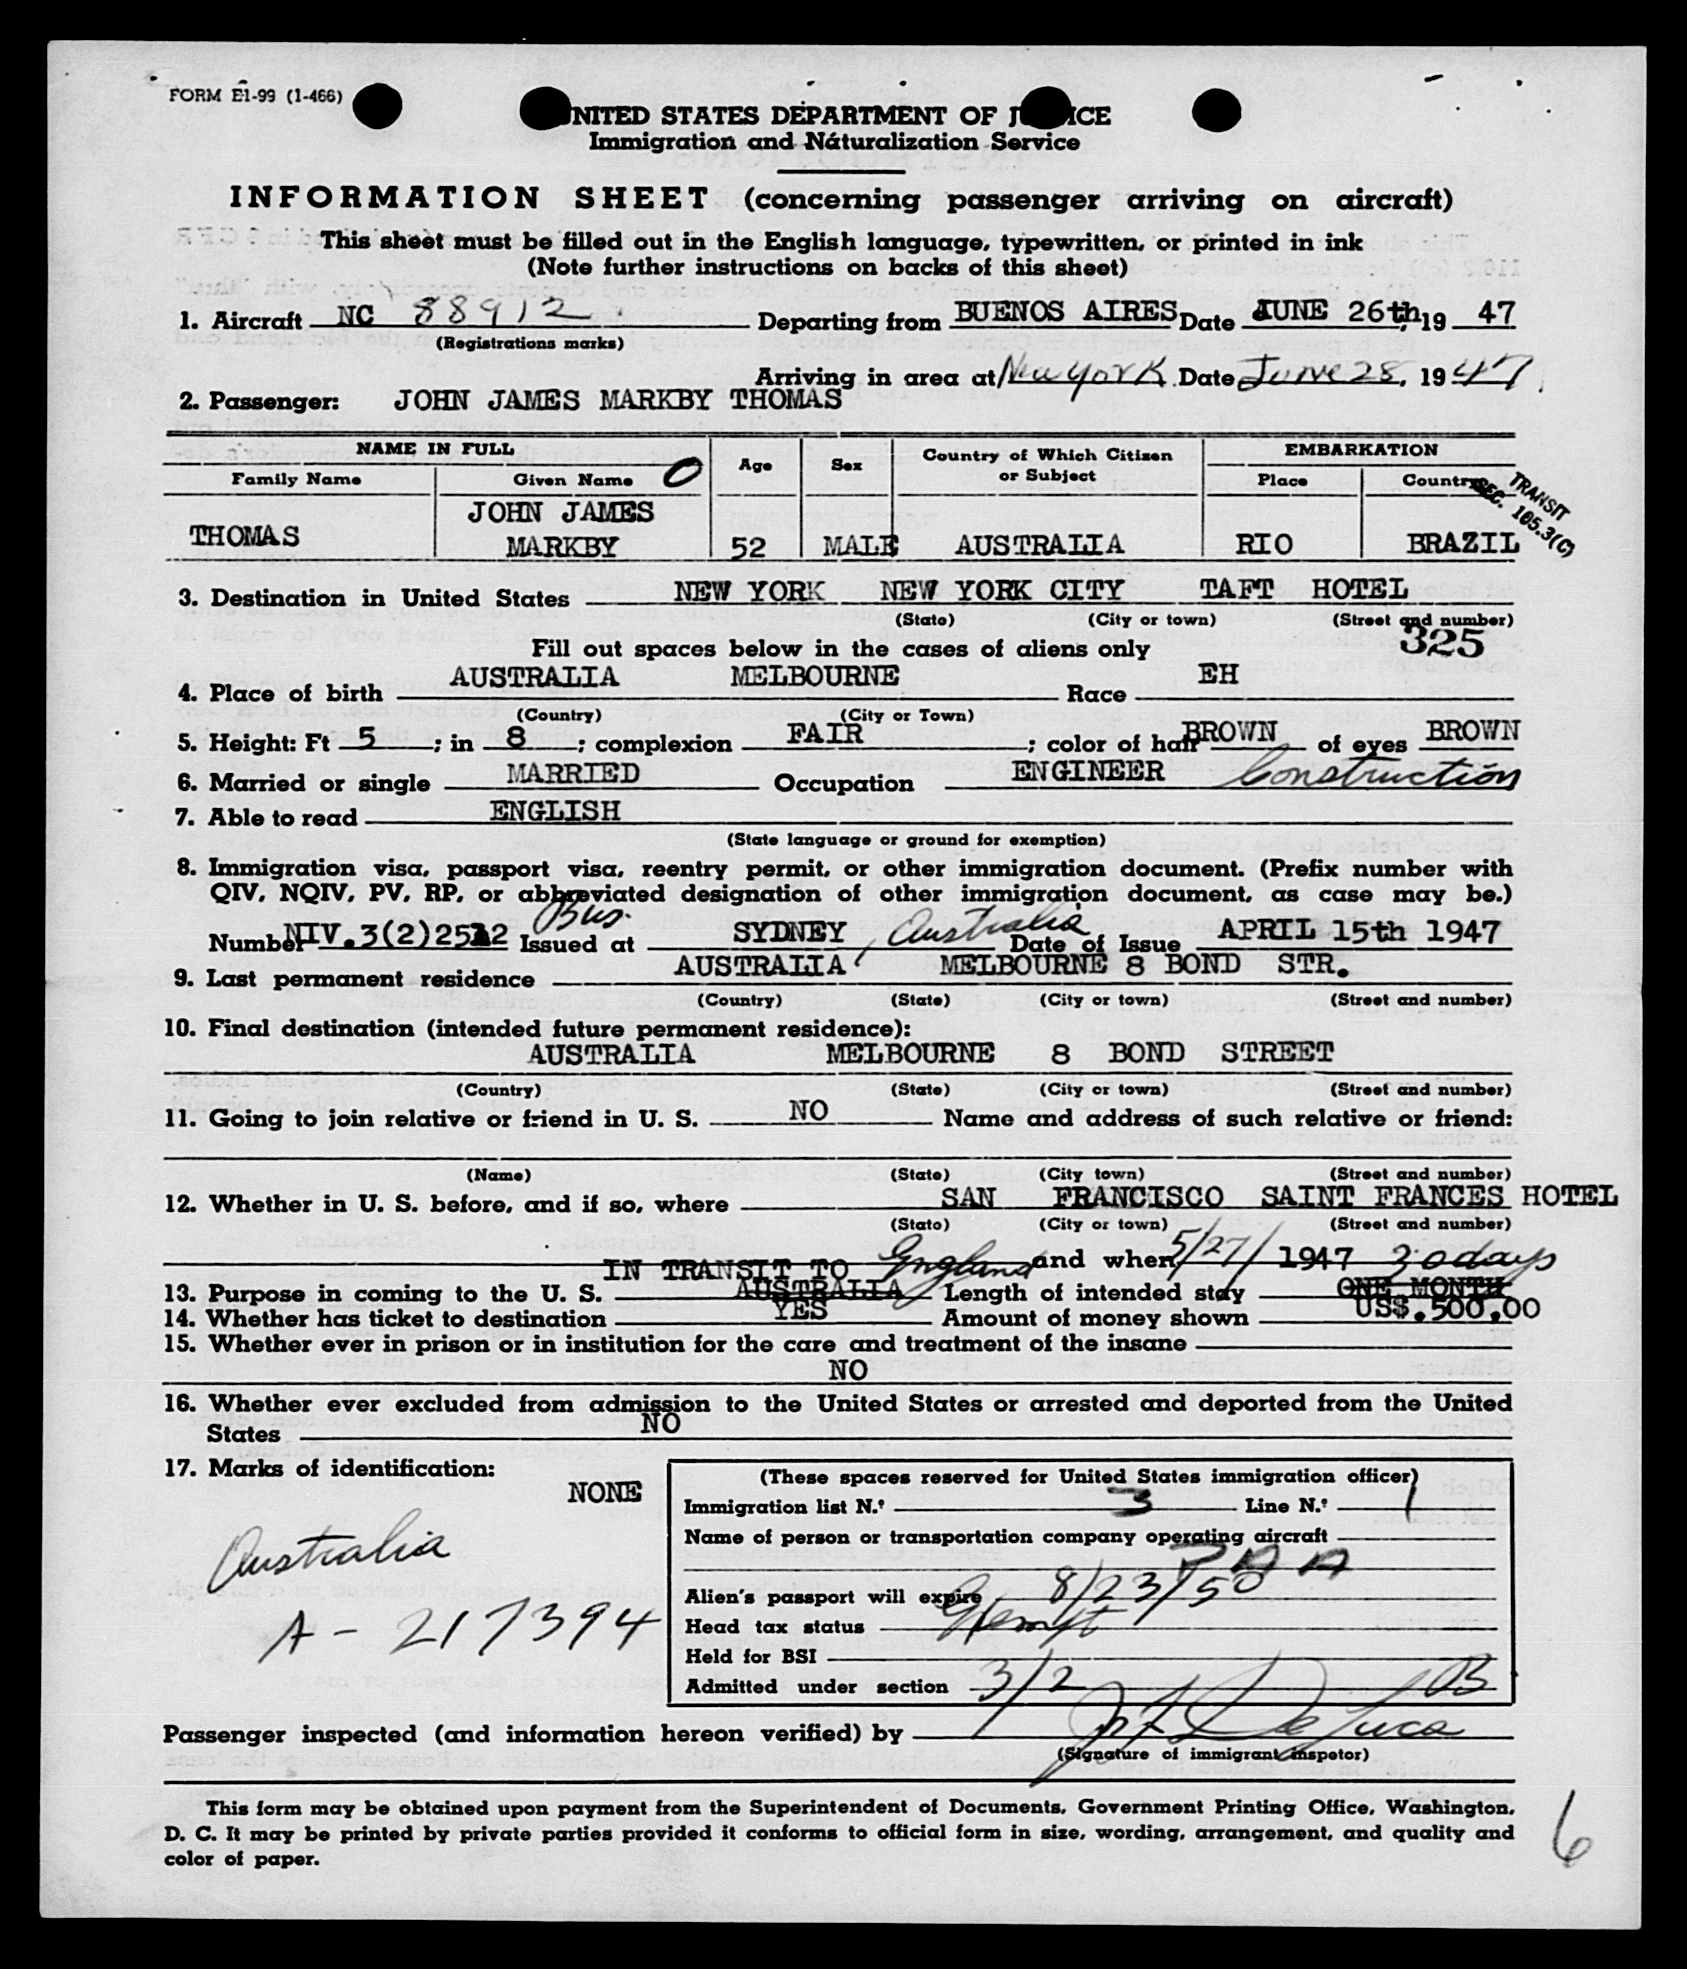 FORM E1-99 (1-466)
UNITED STATES DEPARTMENT OF JUSTICE
Immigration and Naturalization Service
INFORMATION SHEET (concerning passenger arriving on aircraft)
This sheet must be filled out in the English language, typewritten, or printed in ink
(Note further instructions on backs of this sheet)
1. Aircraft NC 88912 Departing from BUENOS AIRES Date JUNE 26th, 19 47
(Registrations marks)
Arriving in area at New York Date June 28, 19 47
2. Passenger: JOHN JAMES MARKBY THOMAS
NAME IN FULL Age Sex Country of Which Citizen or Subject EMBARKATION
Family Name Given Name O Place Country
TRANSIT
SEC. 105.3(C)
THOMAS JOHN JAMES MARKBY 52 MALE AUSTRALIA RIO BRAZIL
3. Destination in United States NEW YORK NEW YORK CITY TAFT HOTEL
(State) (City or town) (Street and number)
Fill out spaces below in the cases of aliens only 325
4. Place of birth AUSTRALIA MELBOURNE Race EH
(Country) (City or Town)
5. Height: Ft 5 ; in 8 ; complexion FAIR ; color of hair BROWN of eyes BROWN
6. Married or single MARRIED Occupation ENGINEER Construction
7. Able to read ENGLISH
(State language or ground for exemption)
8. Immigration visa, passport visa, reentry permit, or other immigration document. (Prefix number with
QIV, NQIV, PV, RP, or abbreviated designation of other immigration document, as case may be.)
Bus.
Number NIV.3(2)2512 Issued at SYDNEY, Australia Date of Issue APRIL 15th 1947
9. Last permanent residence AUSTRALIA MELBOURNE 8 BOND STR.
(Country) (State) (City or town) (Street and number)
10. Final destination (intended future permanent residence):
AUSTRALIA MELBOURNE 8 BOND STREET
(Country) (State) (City or town) (Street and number)
11. Going to join relative or friend in U. S. NO Name and address of such relative or friend:
(Name) (State) (City town) (Street and number)
12. Whether in U. S. before, and if so, where SAN FRANCISCO SAINT FRANCES HOTEL
(State) (City or town) (Street and number)
and when 5/27/ 1947
IN TRANSIT TO England 30 days
13. Purpose in coming to the U. S. AUSTRALIA Length of intended stay ONE MONTH
14. Whether has ticket to destination YES Amount of money shown US$.500,00
15. Whether ever in prison or in institution for the care and treatment of the insane
NO
16. Whether ever excluded from admission to the United States or arrested and deported from the United
States NO
17. Marks of identification:
NONE
Australia
A- 217394
(These spaces reserved for United States immigration officer)
Immigration list N.º 3 Line N.º 1
Name of person or transportation company operating aircraft
P A A
Alien's passport will expire 8/23/50
Head tax status Exempt
Held for BSI
Admitted under section 3/2 B
Passenger inspected (and information hereon verified) by De Luca
(Signature of immigrant inspetor)
This form may be obtained upon payment from the Superintendent of Documents, Government Printing Office, Washington,
D. C. It may be printed by private parties provided it conforms to official form in size, wording, arrangement, and quality and
color of paper.
6